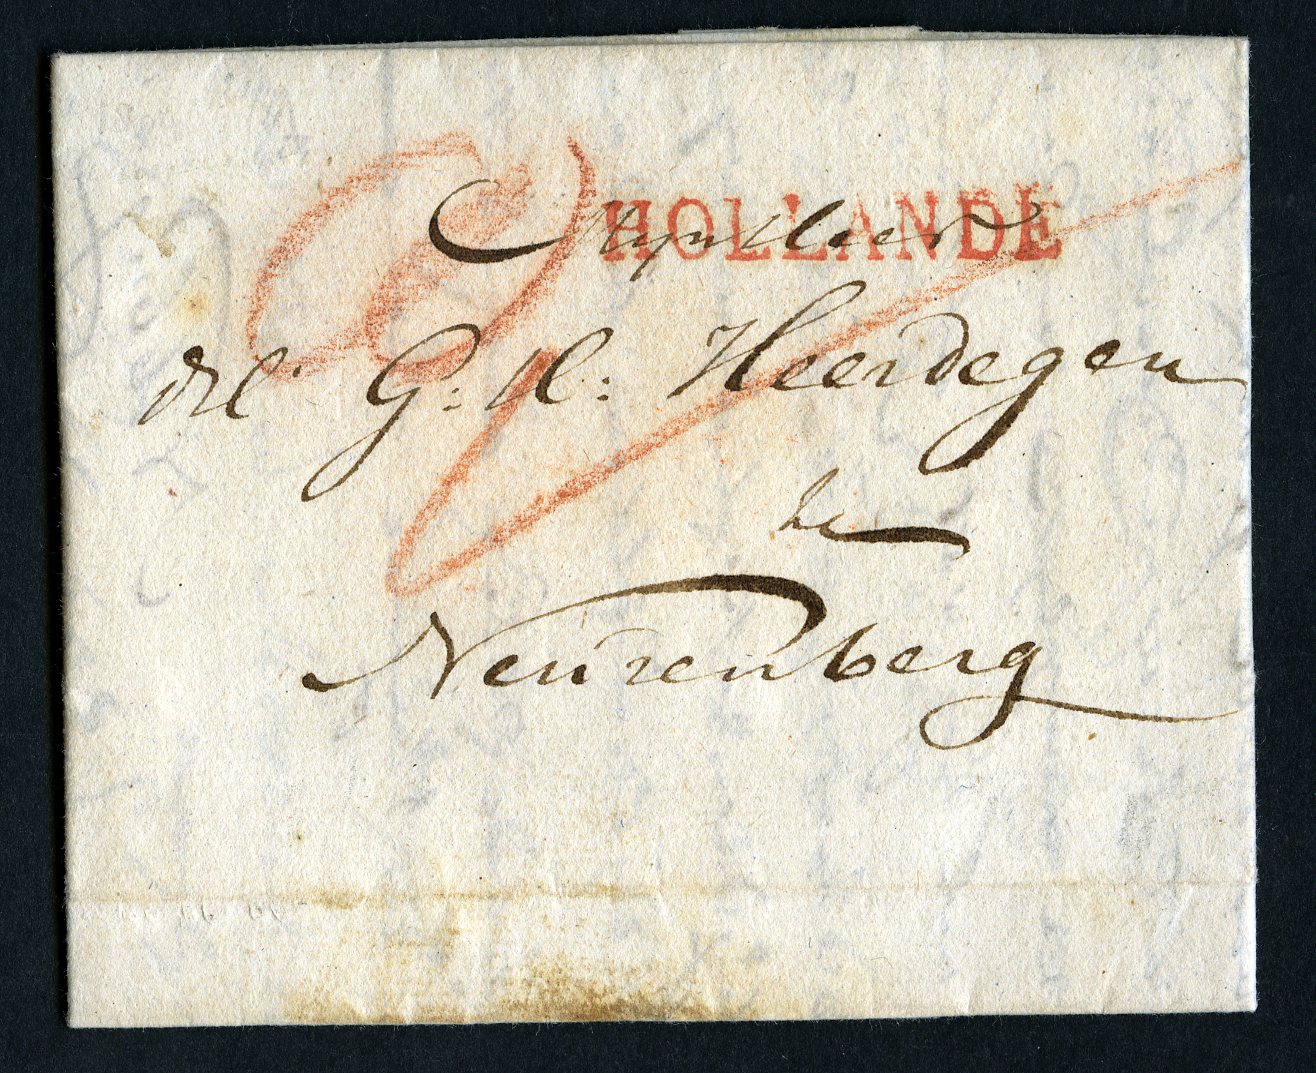 HOLLANDE
Mijn Heer
G: H: Heerdegen
te
Neurenberg